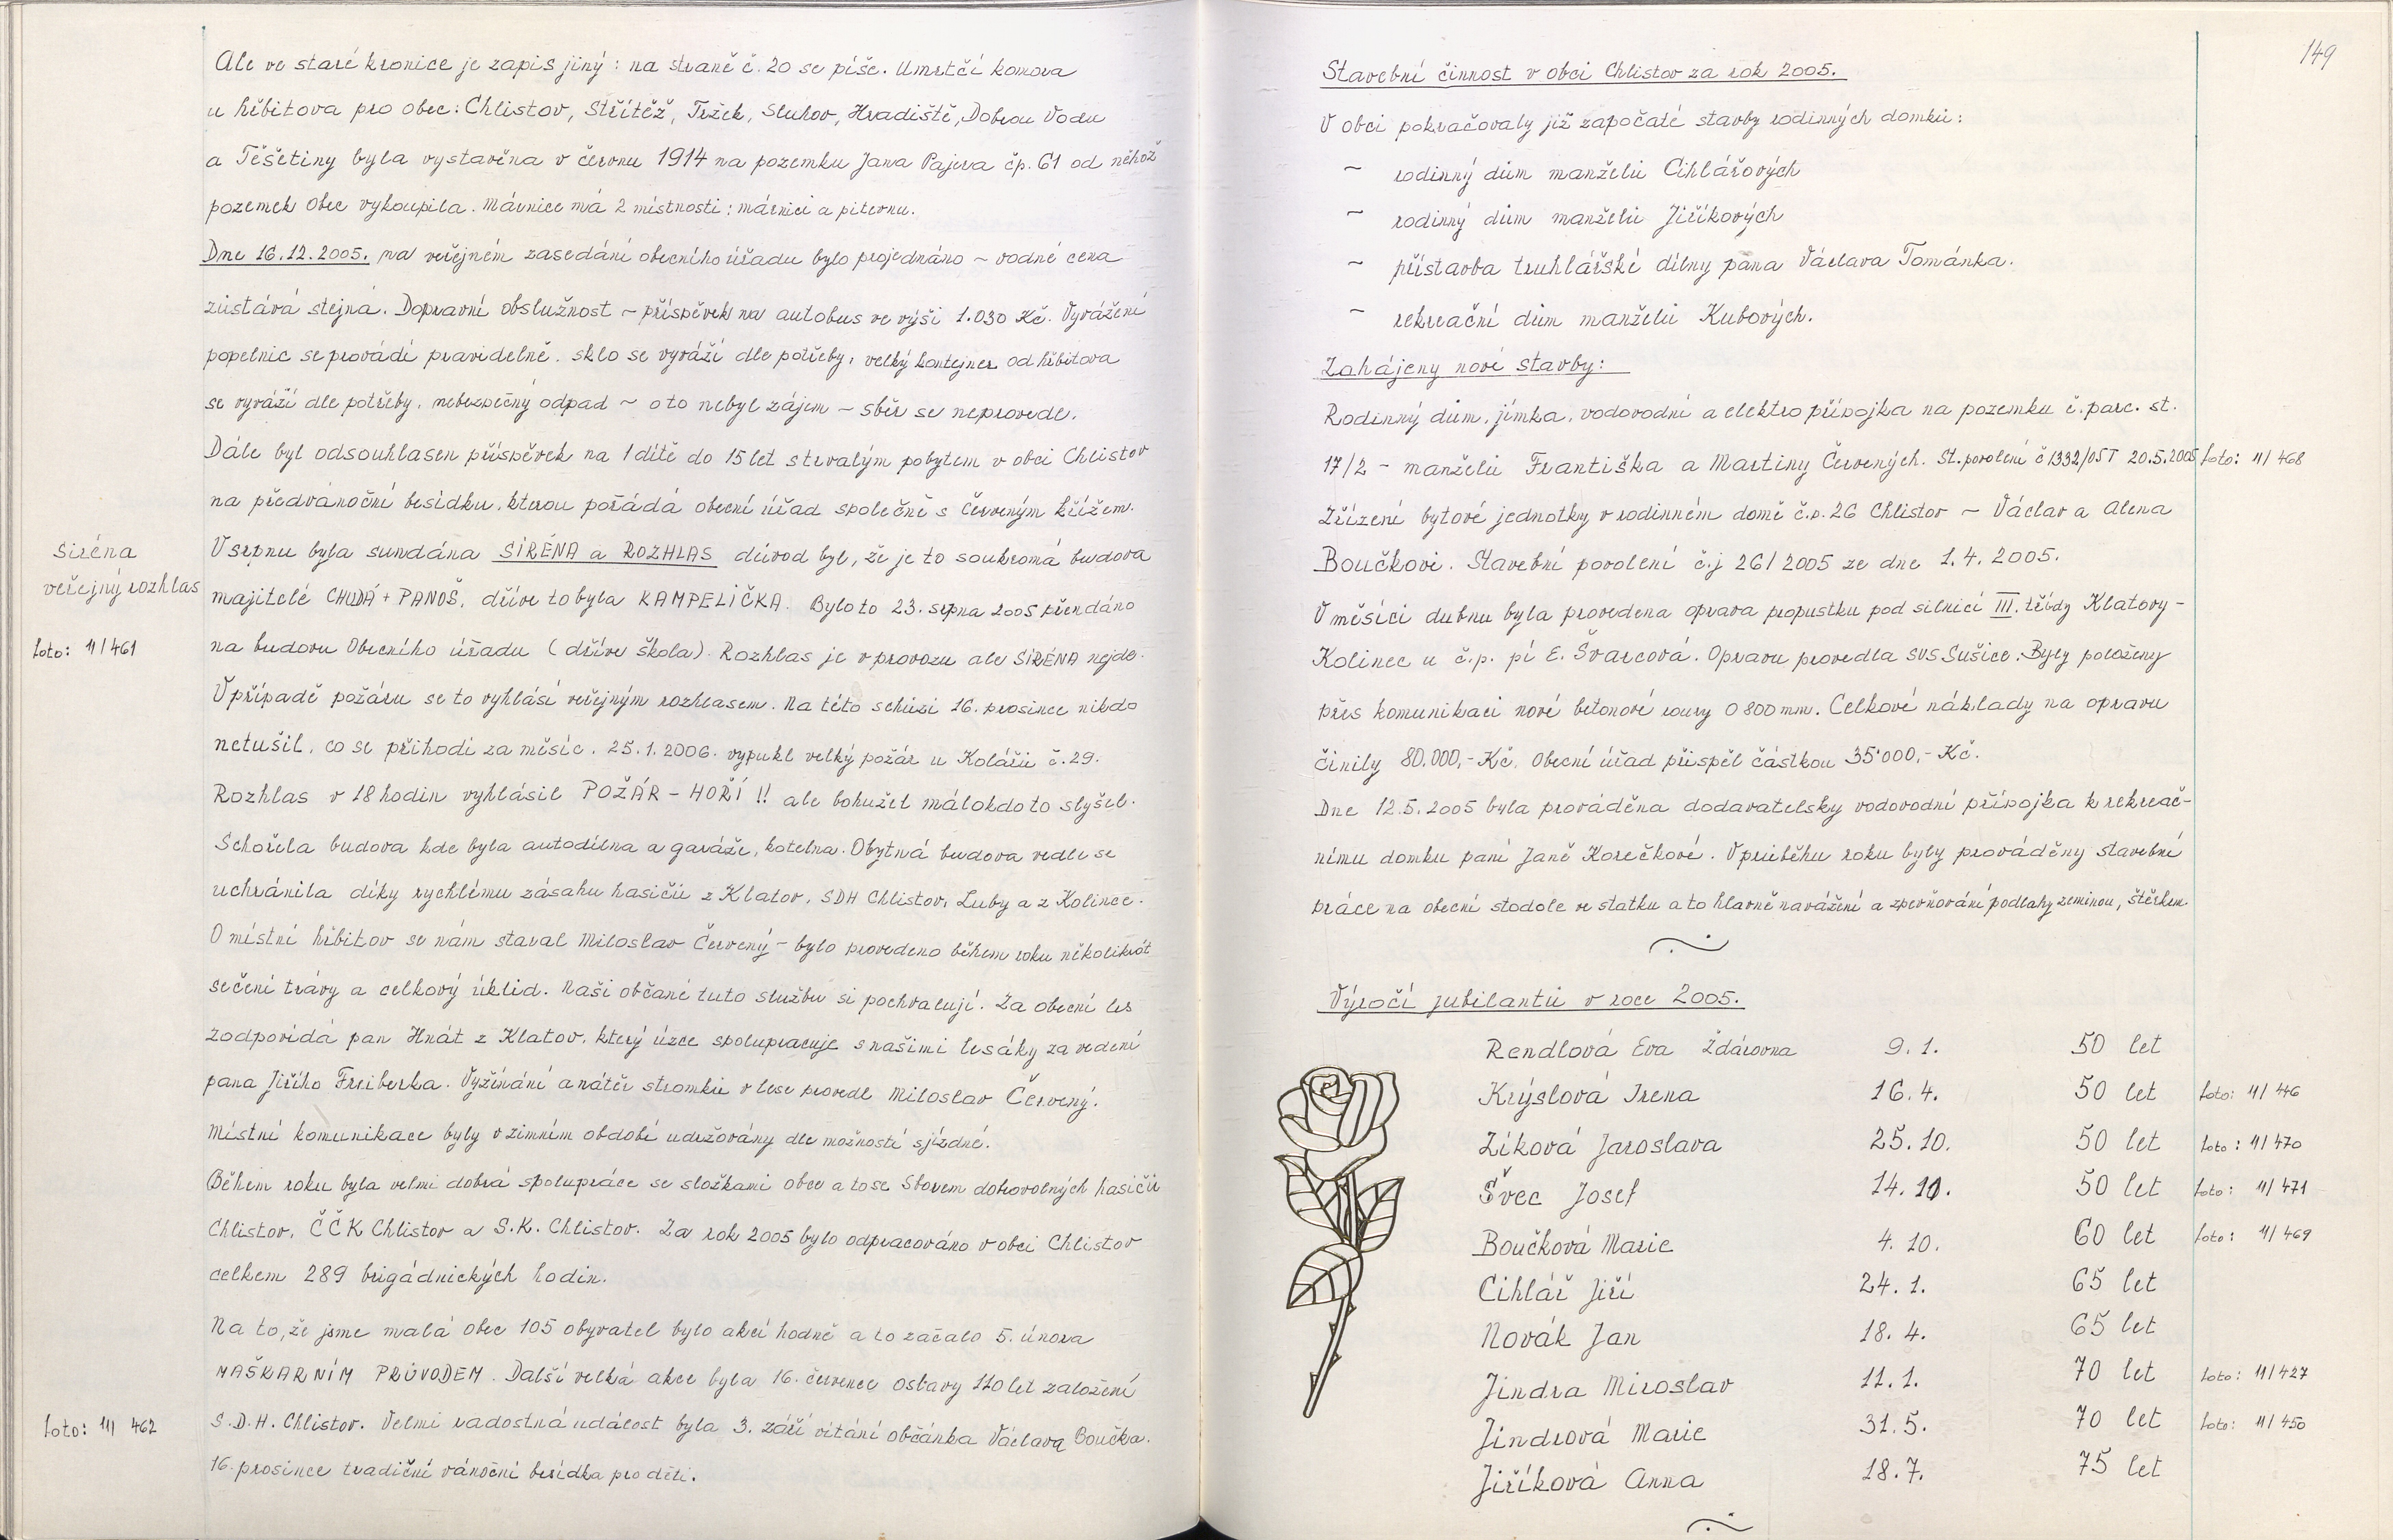 Ale ve staré kronice je zapis jiný : na straně č. 20 se píše. Umrtčí komora
u hřbitova pro obec: Chlistov, Střítěž, Tržek, Sluhov, Hradiště, Dobrou Vodu
a Těšetiny byla vystavěna v červnu 1914 na pozemku Jana Pajera čp. 61 od něhož
pozemek obec vykoupila. márnice má 2 místnosti : márnici a pitevnu.
Dne 16.12.2005. na veřejném zasedání obecního úřadu bylo projednáno ~ vodné cena
zůstává stejná. Dopravní obslužnost ~ příspěvek na autobus ve výši 1.030 Kč. Vyvážení
popelnic se provádí pravidelně. sklo se vyváží dle potřeby, velký kontejner od hřbitova
se vyváží dle potřeby, nebezpečný odpad ~ o to nebyl zájem ~ sběr se neprovede.
Dále byl odsouhlasen příspěvek na 1 dítě do 15 let s trvalým pobytem v obci Chlistov
na předvánoční besídku, kterou pořádá obecní úřad společně s Červeným křížem.
siréna
veřejný rozhlas
V srpnu byla sundána SIRÉNA a ROZHLAS důvod byl, že je to soukromá budova
majitelé CHUDÁ + PANOŠ, dříve to byla KAMPELIČKA. Bylo to 23. srpna 2005 přendáno
foto: 11/461
na budovu Obecního úřadu (dříve škola). Rozhlas je v provozu ale SIRÉNA nejde.
V případě požáru se to vyhlásí veřejným rozhlasem. Na této schůzi 16. prosince nikdo
netušil, co se přihodí za měsíc. 25.1.2006. vypukl velký požár u Kolářů č. 29.
Rozhlas v 18 hodin vyhlásil POŽÁR – HOŘÍ !! ale bohužel málokdo to slyšel.
Schořela budova kde byla autodílna a garáže, kotelna. Obytná budova vedle se
uchránila díky rychlému zásahu hasičů z Klatov, SDH Chlistov, Luby a z Kolince.
O místní hřbitov se nám staral Miloslav Červený – bylo provedeno během roku několikrát
sečení trávy a celkový úklid. Naši občané tuto službu si pochvalují. Za obecní les
zodpovídá pan Hnát z Klatov, který úzce spolupracuje s našimi lesáky za vedení
pana Jiřího Freiberka. Vyžínání a nátěr stromků v lese provedl Miloslav Červený.
Místní komunikace byly v zimním období udržovány dle možností sjízdné.
Během roku byla velmi dobrá spolupráce se složkami obce a to se Sborem dobrovolných hasičů
Chlistov, ČČK Chlistov a S.K. Chlistov. Za rok 2005 bylo odpracováno v obci Chlistov
celkem 289 brigádnických hodin.
Na to, že jsme malá obec 105 obyvatel bylo akcí hodně a to začalo 5. února
MAŠKARNÍM PRŮVODEM. Další velká akce byla 16. července oslavy 110 let založení
foto: 11/ 462
S.D.H. Chlistov. Velmi radostná událost byla 3. září vítání občánka Václava Boučka.
16. prosince tradiční vánoční besídka pro děti.
149
Stavební činnost v obci Chlistov za rok 2005.
V obci pokračovaly již započaté stavby rodinných domků:
~ rodinný dům manželů Cihlářových
~ rodinný dům manželů Jiříkových
~ přístavba truhlářské dílny pana Václava Tománka.
~ rekreační dům manželů Kubových.
Zahájeny nové stavby:
Rodinný dům, jímka, vodovodní a elektro přípojka na pozemku č. parc. st.
17/2 – manželů Františka a Martiny Červených. St. povolení č 1332/05T 20.5.2005 foto: 11/468
Zřízení bytové jednotky v rodinném domě č.p. 26 Chlistov ~ Václav a Alena
Boučkovi. Stavební povolení č.j 261/2005 ze dne 1.4.2005.
V měsíci dubnu byla provedena oprava propustku pod silnicí III. třídy Klatovy –
Kolinec u č.p. pí E. Švarcová. Opravu provedla SÚS Sušice. Byly položeny
přes komunikaci nové betonové roury 0 800 mm. Celkové náklady na opravu
činily 80.000,– Kč. Obecní úřad přispěl částkou 35'000,– Kč.
Dne 12.5.2005 byla prováděna dodavatelsky vodovodní přípojka k rekreač–
nímu domku paní Janě Korečkové. V průběhu roku byly prováděny stavební
práce na obecní stodole ve statku a to hlavně navážení a zpevňování podlahy zeminou, štěrkem.
Výročí jubilantů v roce 2005.
Rendlová Eva Ždárovna 9. 1. 50 let
Krýslová Irena 16. 4. 50 let foto: 11/446
Zíková Jaroslava 25. 10. 50 let foto: 11/470
Švec Josef 14. 10. 50 let foto: 11/471
Boučková Marie 4. 10. 60 let foto: 11/469
Cihlář Jiří 24. 1. 65 let
Novák Jan 18. 4. 65 let
Jindra Miroslav 11. 1. 70 let foto: 11/427
Jindrová Marie 31. 5. 70 let foto: 11/450
Jiříková Anna 18. 7. 75 let